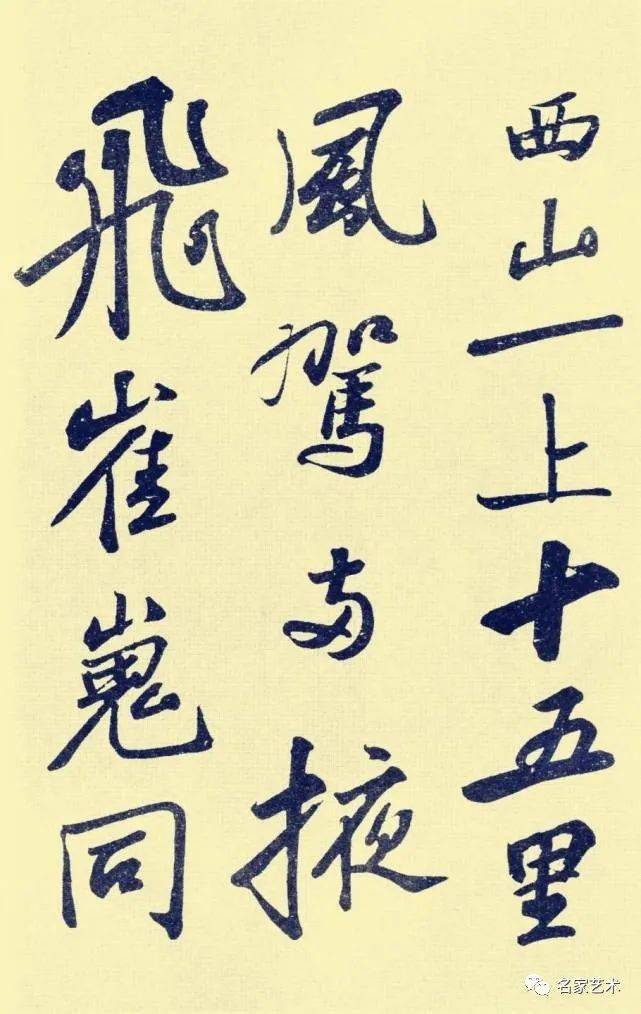 西山一上十五里
風駕兩掖
飛崔嵬同
名家艺术